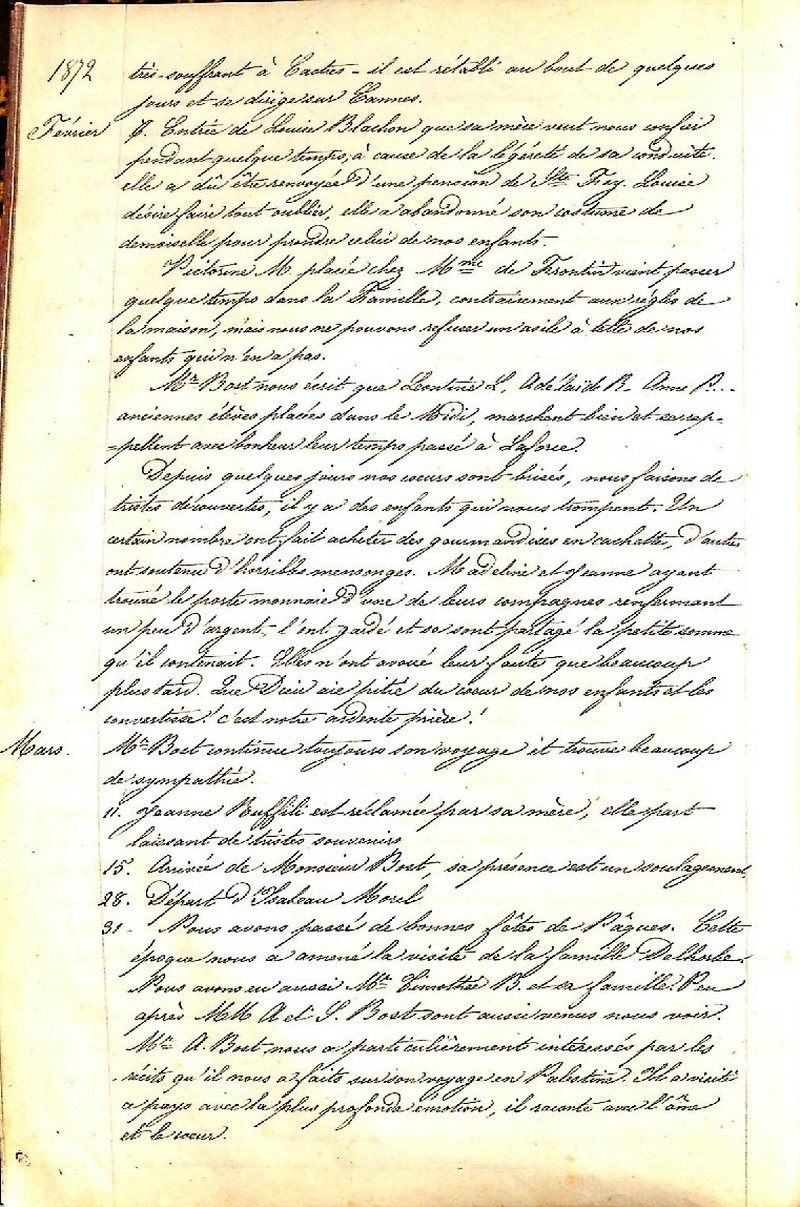 1872 très-souffrant à Castres - il est rétabli au bout de quelques
jours et se dirige sur Cannes.
Février 6. Entrée de Louise Blachon que sa mère veut nous confier
pendant quelque temps, à cause de la légéreté de sa conduite.
elle a dû être renvoyée d'une pension de Ste Foy. Louise
désire faire tout oublier, elle a abandonné son costume de
demoiselle pour prendre celui de nos enfants.
Victorine M. placée chez Mme de Frontin vient passer
quelque temps dans la Famille, contrairement aux règles de
la maison, mais nous ne pouvons refuser un asile à celle de nos
enfants qui n'en a pas.
Mr Bost nous écrit que Léontine L, Adélaïde B- Anne P...
anciennes élèves placées dans le Midi, marchent bien et se rap-
-pellent avec bonheur leur temps passé à Laforce.
Depuis quelques jours nos cœurs sont brisés, nous faisons de
tristes découvertes, il y a des enfants qui nous trompent. Un
certain nombre ont fait acheter des gourmandises en cachette, d'autres
ont soutenu d'horribles mensonges. Madeline et Jeanne ayant
trouvé le porte monnaie d'une de leurs compagnes renfermant
un peu d'argent, l'ont gardé et se sont partagé la petite somme
qu'il contenait. Elles n'ont avoué leur faute que beaucoup
plus tard. Que Dieu aie pitié du cœur de nos enfants et les
convertisse! c'est notre ardente prière!
Mars. Mr Bost continue toujours son voyage et trouve beaucoup
de sympathie.
11. Jeanne Ruffili est réclamée par sa mère, elle part
laissant de tristes souvenirs
15. Arrivée de Monsieur Bost, sa présence est un soulagement.
28. Départ d'Isabeau Morel
31- Nous avons passé de bonnes fêtes de Pâques. Cette
époque nous a amené la visite de la famille Delhorbe.
Nous avons eu aussi Mr Timothée B. et sa famille. Peu
après MM A et S. Bost sont aussi venus nous voir.
Mr A. Bost nous a particulièrement intéressés par les
récits qu'il nous a faits sur son voyage en Palestine. Il a visité
ce pays avec la plus profonde émotion, il raconte avec l'âme
et le cœur.